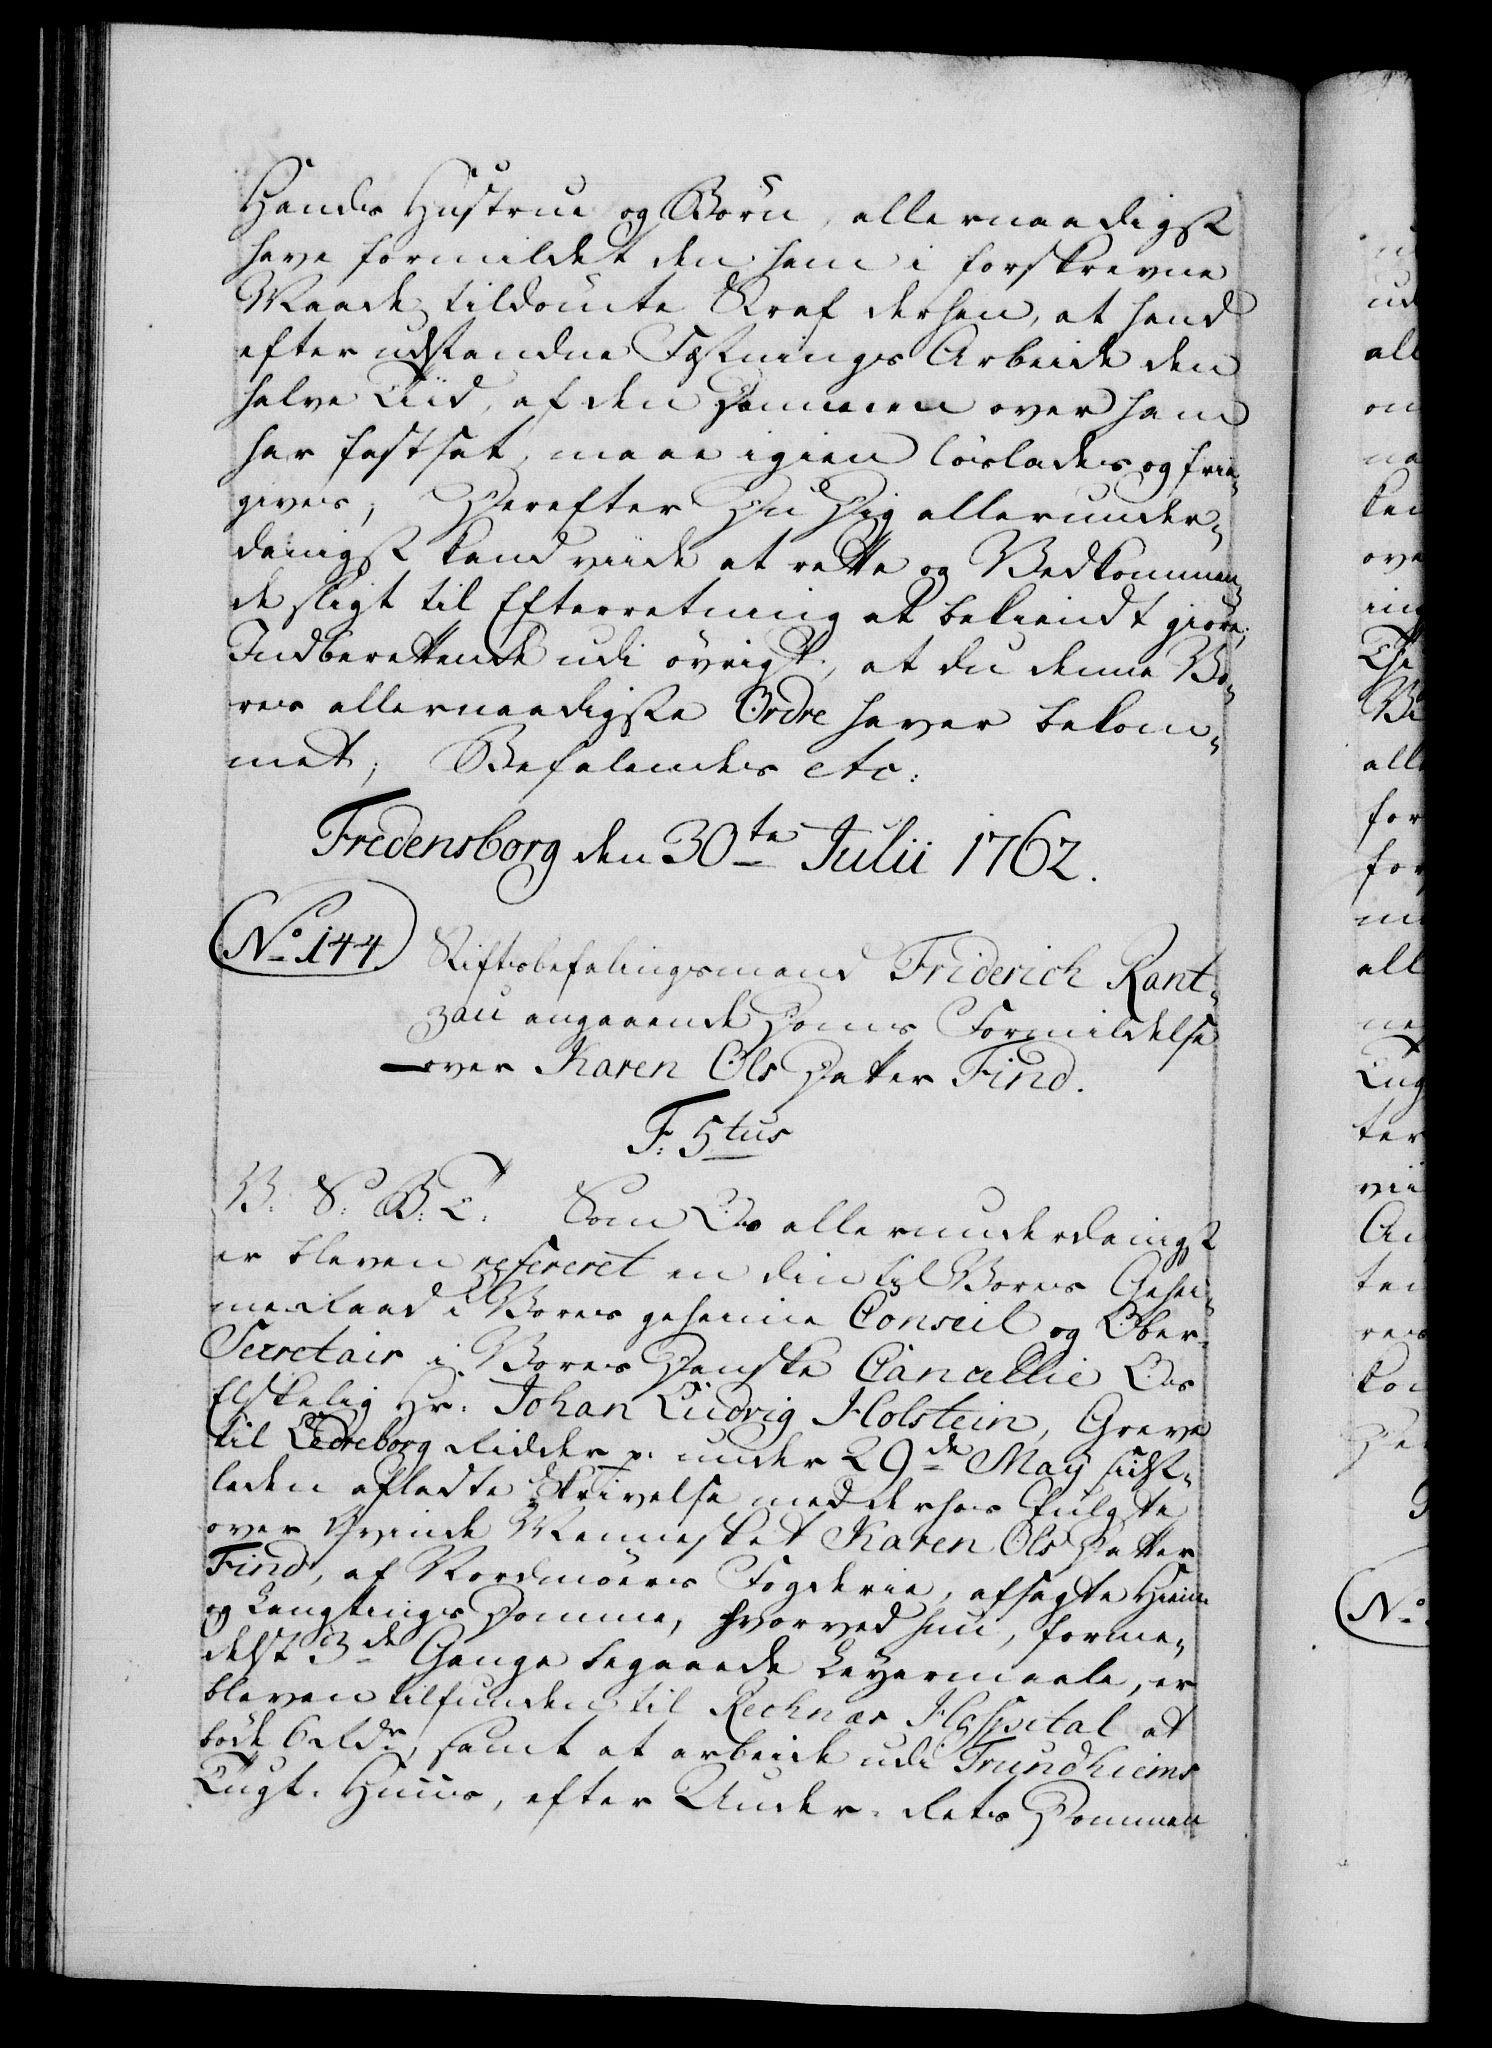 Hands Hustrue og Börn, allernaadigst
have formildet den ham i forskrevne
Maade tildömte Straf derhen, at hand
efter udstandne Fæstnings Arbeide den
halve Tiid, af den Dommeren over ham
har fastsat, maae igien löslades og frie¬
gives; Derefter Du Dig allerunder¬
danigst kand viide at rette og Vedkommen¬
de sligt til Efterretning at bekiendtgiöre;
Indberettende udi övrigt, at du denne Vo¬
res allernaadigste Ordre haver bekom¬
met; Befalendes etc:
Fredensborg den 30te Julii 1762.
No. 144.
Stiftsbefalingsmand Friderich Rant¬
zau angaaende Doms Formildelse
over Karen Ols Datter Find.
F: 5tus
V: S: B: T: Som Os allerunderdanigst
er bleven refereret en din til Vores Gehei¬
me Raad i Vores geheime Conseil og Ober
Secretair i Vores Danske Cancellie Os
Elskelig Hr. Johan Ludvig Holstein, Greve
til Ledreborg Ridder p. under 29de Maÿ sidst¬
leden afladte Skrivelse med derhos fulgte
over Qvinde Mennesket Karen Ols Datter
Find, af Nordmöers Fogderie, afsagte Hiem
og Laugtings Domme, hvorved hun, forme¬
delst 3de Gange begaaede Leyermaale, er
bleven tilfunden til Rechnæs Hospital at
böde 6 Rdr, samt at arbeide udi Trundhiems
Tugt-Huus, efter Under-Rets Dommen
No.